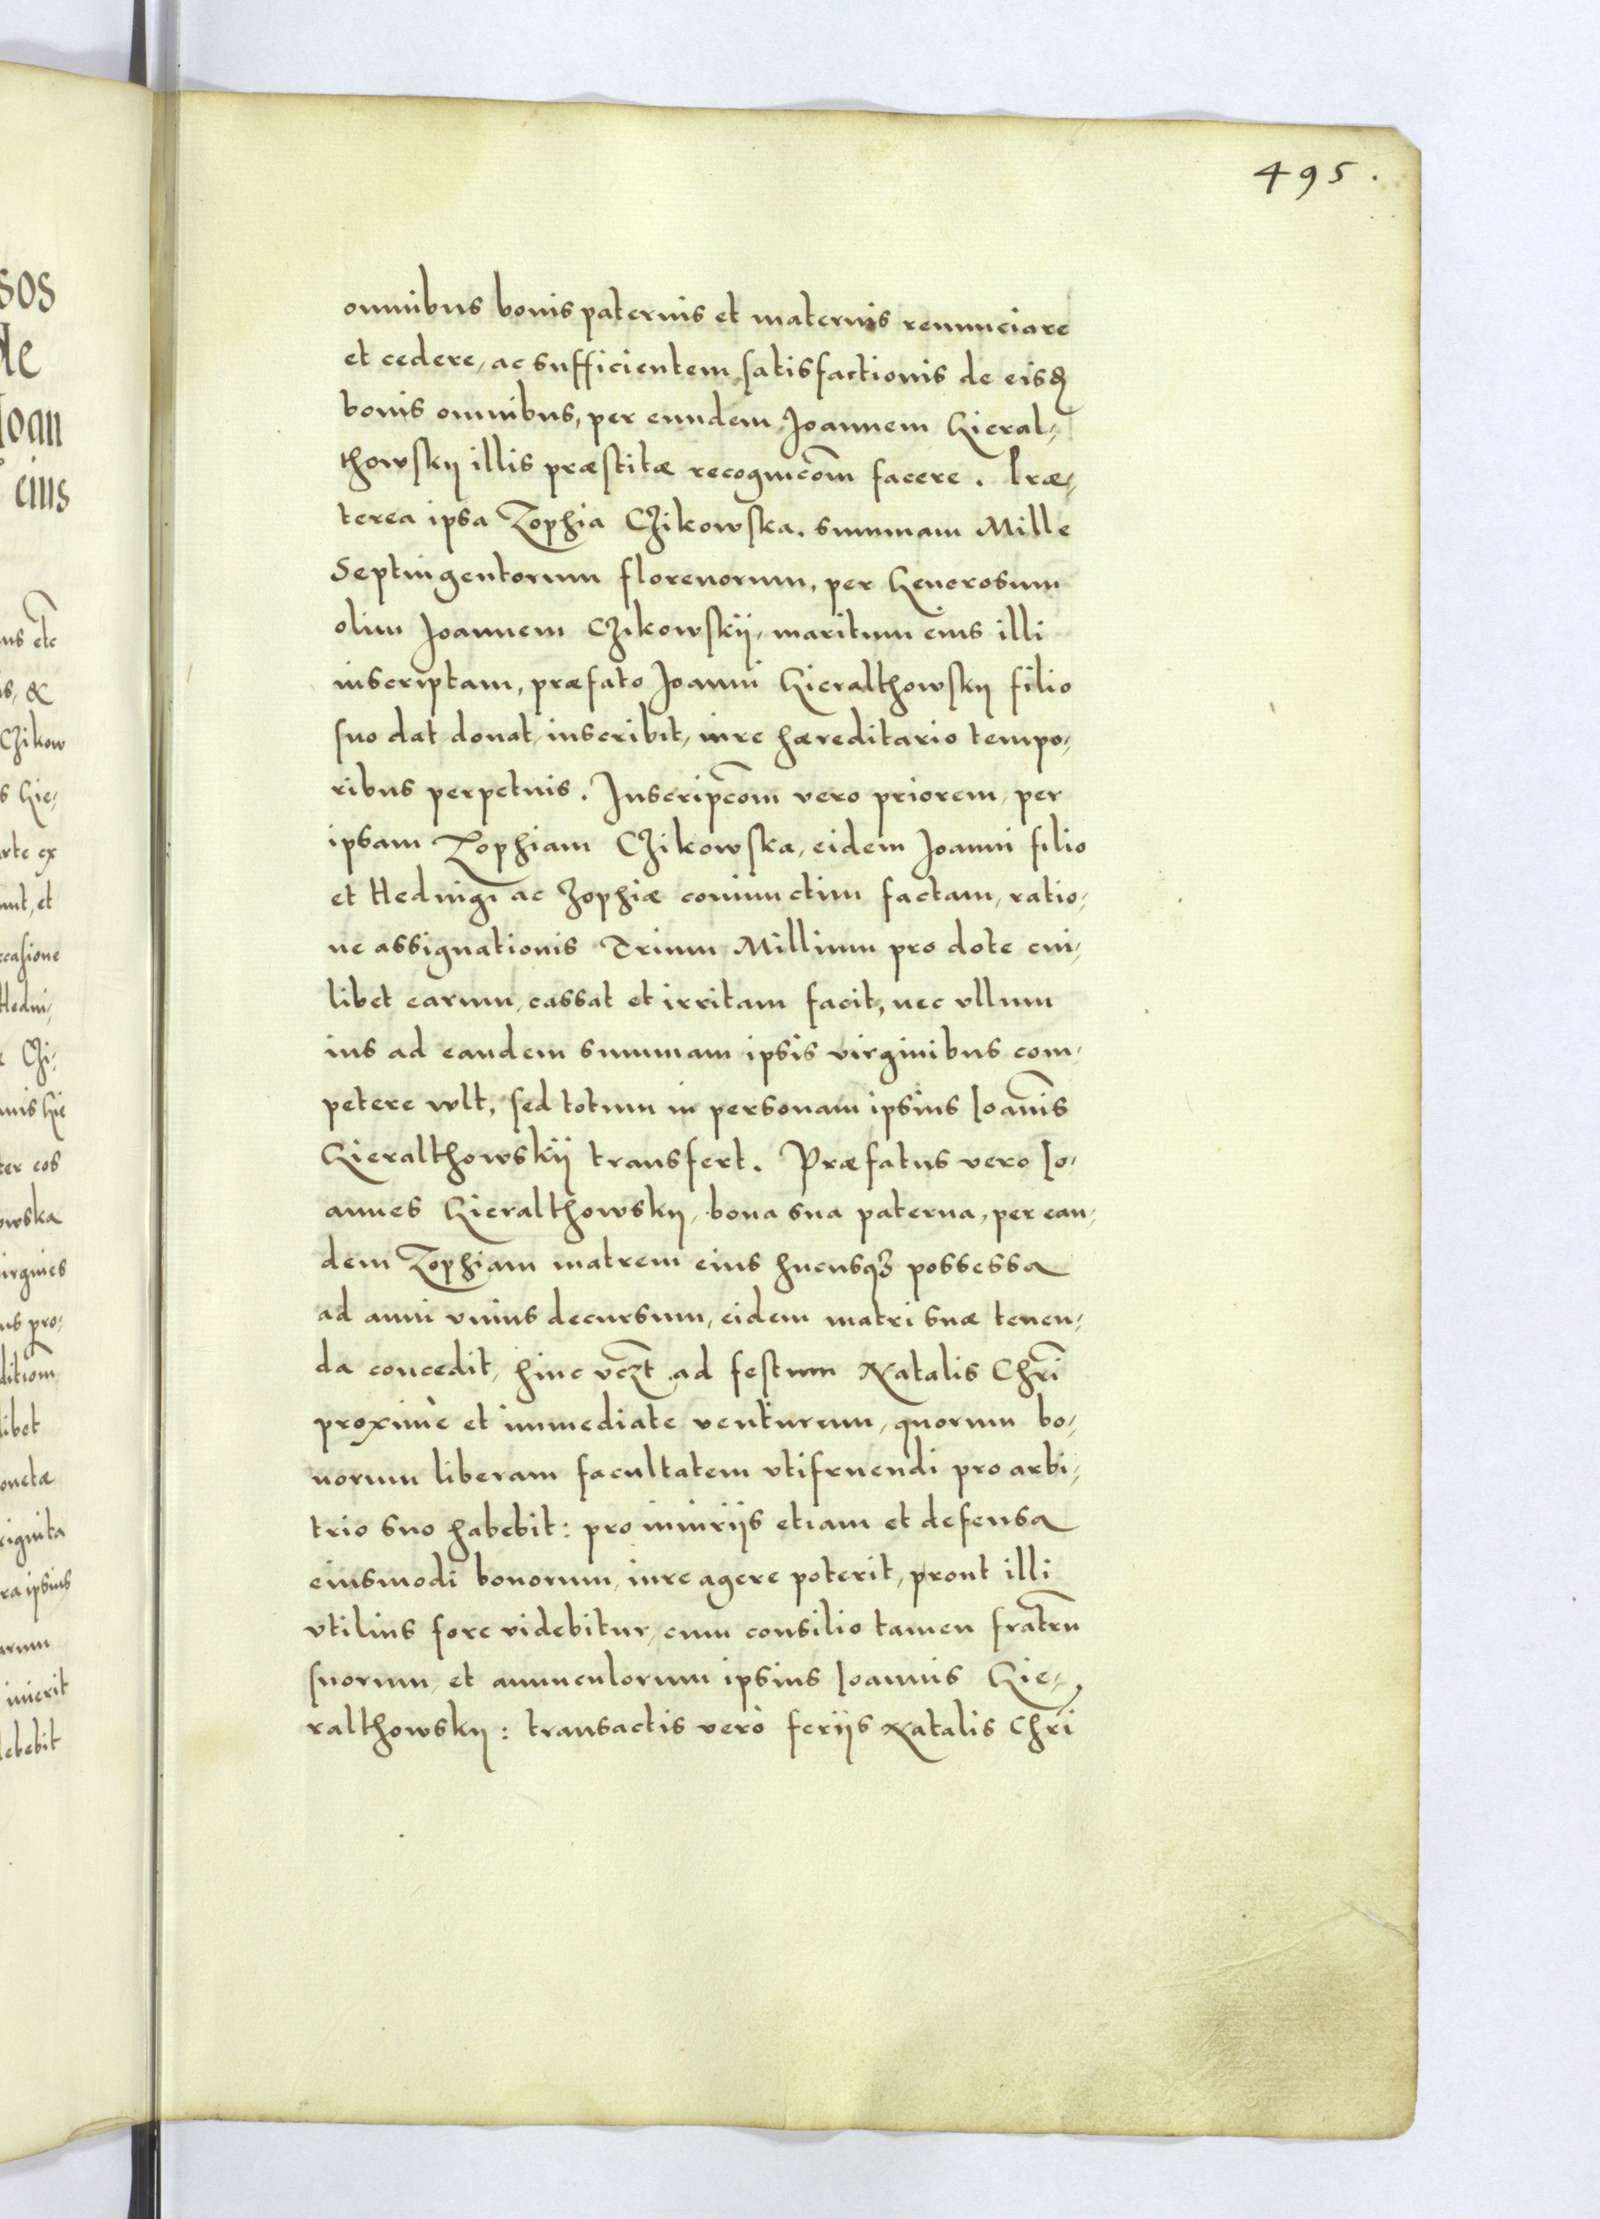 495.
omnibus bonis paternis et maternis renunciare
et cedere, ac sufficientem satisfactionis de eisdẽ
bonis omnibus, per eundem Joannem Gieral,
thowskij illis præstitæ recognicõm facere. Præ,
terea ipsa Zophia Czikowska, summam Mille
Septingentorum florenorum, per Generosum
olim Joannem Czikowskij, maritum eius illi
inscriptam, præfato Joanni Gieralthowskij filio
suo dat donat, inscribit, iure hæreditario tempo,
ribus perpetuis. Inscripcõm vero priorem, per
ipsam Zophiam Czikowska, eidem Joanni filio
et Heduigi ac Zophiæ coniunctim factam, ratio,
ne assignationis Trium Millium pro dote cui,
libet earum, cassat et irritam facit, nec vllum
ius ad eandem summam ipsis virginibus com,
petere wlt, sed totum in personam ipsius Ioañis
Gieralthowskij transfert. Præfatus vero Io,
annes Gieralthowskij, bona sua paterna, per ean,
dem Zophiam matrem eius hucusqꝫ possessa
ad anni vnius decursum, eidem matri suæ tenen,
da concedit, hinc vcꝫt ad festum Natalis Chri̅
proximè et immediate venturum, quorum bo,
norum liberam facultatem vtifruendi pro arbi,
trio suo habebit: pro iniurijs etiam et defensa
eiusmodi bonorum, iure agere poterit, prout illi
vtilius fore videbitur, cum consilio tamen fratru̅
suorum, et auunculorum ipsius Ioannis Gie,
ralthowskij: transactis verò ferijs Natalis Chri̅